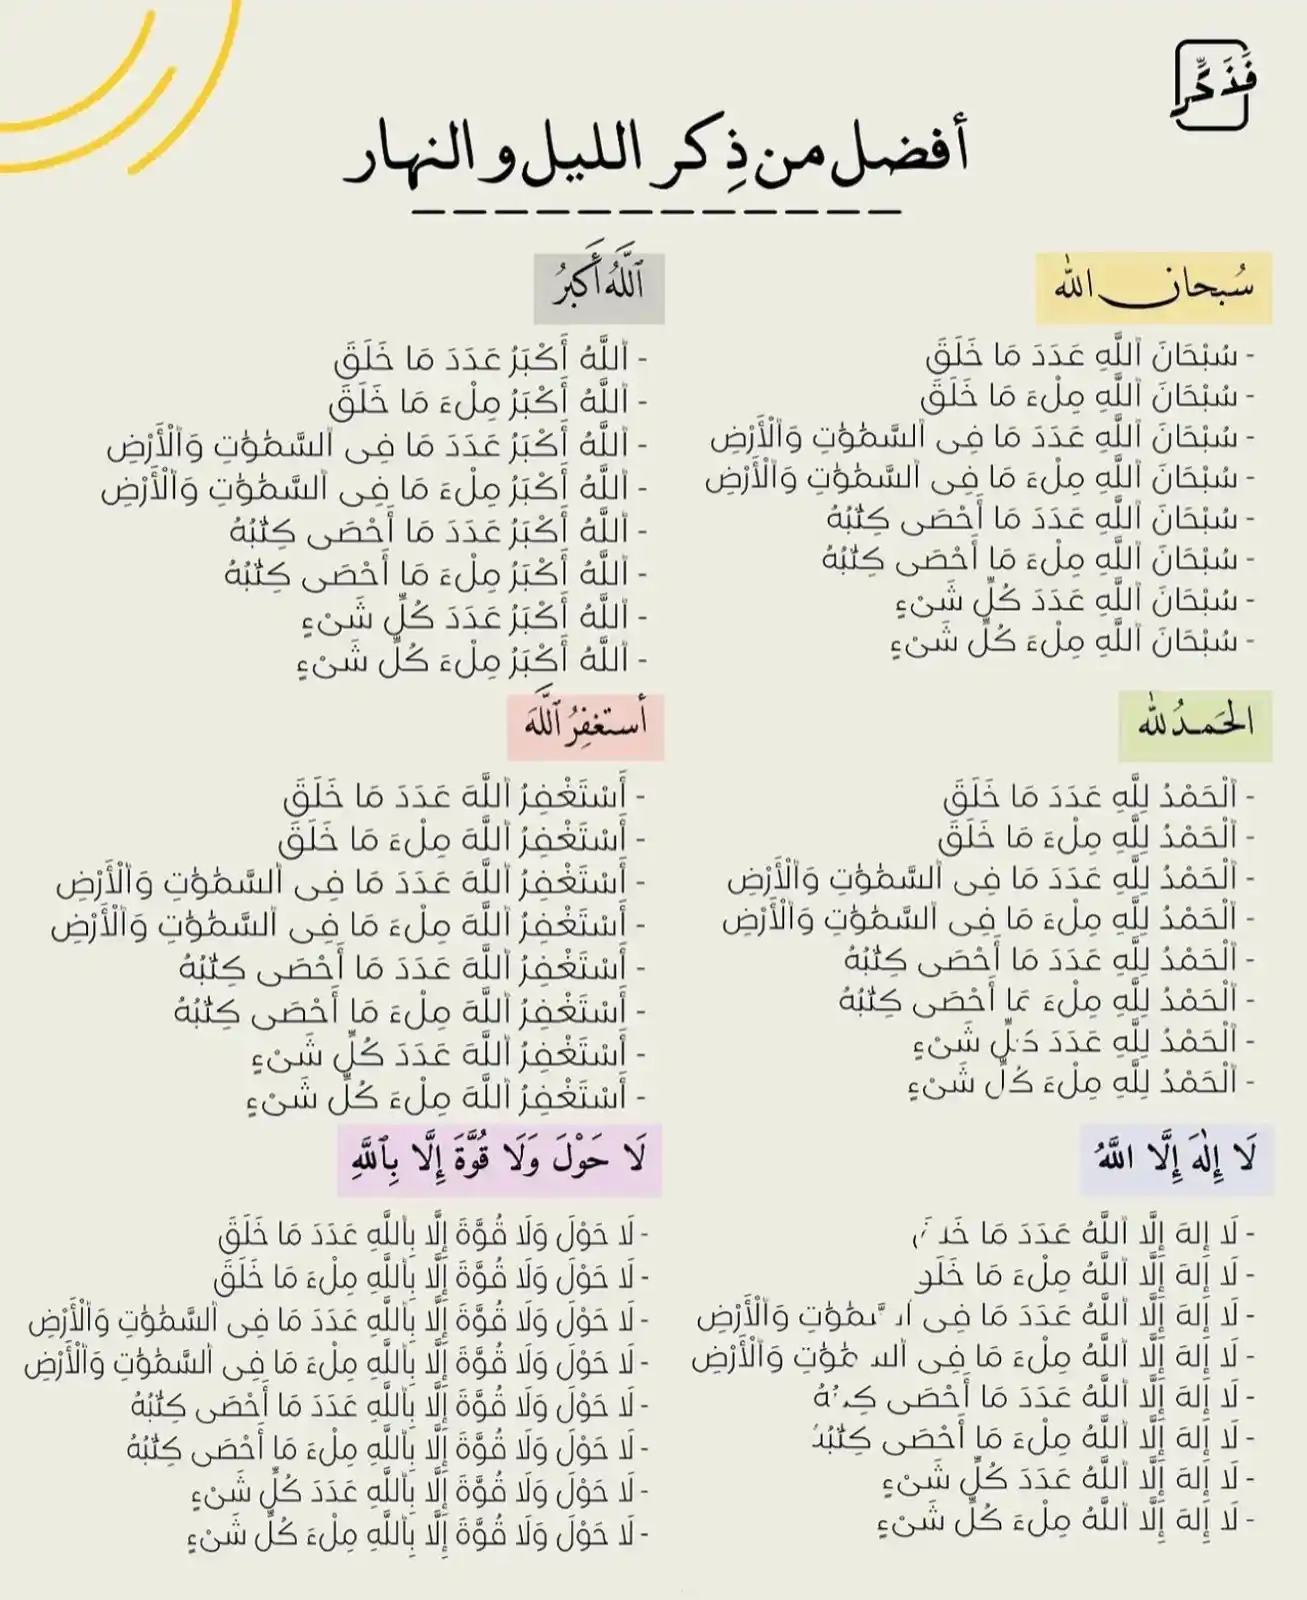 فَذَكِّر
أفضل من ذِكر الليل و النهار
سُبحان الله
- سُبْحَانَ ٱللَّهِ عَدَدَ مَا خَلَقَ
- سُبْحَانَ ٱللَّهِ مِلْءَ مَا خَلَقَ
- سُبْحَانَ ٱللَّهِ عَدَدَ مَا فِى ٱلسَّمَٰوَٰتِ وَٱلْأَرْضِ
- سُبْحَانَ ٱللَّهِ مِلْءَ مَا فِى ٱلسَّمَٰوَٰتِ وَٱلْأَرْضِ
- سُبْحَانَ ٱللَّهِ عَدَدَ مَا أَحْصَى كِتَٰبُهُ
- سُبْحَانَ ٱللَّهِ مِلْءَ مَا أَحْصَى كِتَٰبُهُ
- سُبْحَانَ ٱللَّهِ عَدَدَ كُلِّ شَىْءٍ
- سُبْحَانَ ٱللَّهِ مِلْءَ كُلِّ شَىْءٍ
ٱللَّهُ أَكبَرُ
- ٱللَّهُ أَكْبَرُ عَدَدَ مَا خَلَقَ
- ٱللَّهُ أَكْبَرُ مِلْءَ مَا خَلَقَ
- ٱللَّهُ أَكْبَرُ عَدَدَ مَا فِى ٱلسَّمَٰوَٰتِ وَٱلْأَرْضِ
- ٱللَّهُ أَكْبَرُ مِلْءَ مَا فِى ٱلسَّمَٰوَٰتِ وَٱلْأَرْضِ
- ٱللَّهُ أَكْبَرُ عَدَدَ مَا أَحْصَى كِتَٰبُهُ
- ٱللَّهُ أَكْبَرُ مِلْءَ مَا أَحْصَى كِتَٰبُهُ
- ٱللَّهُ أَكْبَرُ عَدَدَ كُلِّ شَىْءٍ
- ٱللَّهُ أَكْبَرُ مِلْءَ كُلِّ شَىْءٍ
الحَمدُ لله
- ٱلْحَمْدُ لِلَّهِ عَدَدَ مَا خَلَقَ
- ٱلْحَمْدُ لِلَّهِ مِلْءَ مَا خَلَقَ
- ٱلْحَمْدُ لِلَّهِ عَدَدَ مَا فِى ٱلسَّمَٰوَٰتِ وَٱلْأَرْضِ
- ٱلْحَمْدُ لِلَّهِ مِلْءَ مَا فِى ٱلسَّمَٰوَٰتِ وَٱلْأَرْضِ
- ٱلْحَمْدُ لِلَّهِ عَدَدَ مَا أَحْصَى كِتَٰبُهُ
- ٱلْحَمْدُ لِلَّهِ مِلْءَ مَا أَحْصَى كِتَٰبُهُ
- ٱلْحَمْدُ لِلَّهِ عَدَدَ كُلِّ شَىْءٍ
- ٱلْحَمْدُ لِلَّهِ مِلْءَ كُلِّ شَىْءٍ
أستغفِرُ ٱللَّهَ
- أَسْتَغْفِرُ ٱللَّهَ عَدَدَ مَا خَلَقَ
- أَسْتَغْفِرُ ٱللَّهَ مِلْءَ مَا خَلَقَ
- أَسْتَغْفِرُ ٱللَّهَ عَدَدَ مَا فِى ٱلسَّمَٰوَٰتِ وَٱلْأَرْضِ
- أَسْتَغْفِرُ ٱللَّهَ مِلْءَ مَا فِى ٱلسَّمَٰوَٰتِ وَٱلْأَرْضِ
- أَسْتَغْفِرُ ٱللَّهَ عَدَدَ مَا أَحْصَى كِتَٰبُهُ
- أَسْتَغْفِرُ ٱللَّهَ مِلْءَ مَا أَحْصَى كِتَٰبُهُ
- أَسْتَغْفِرُ ٱللَّهَ عَدَدَ كُلِّ شَىْءٍ
- أَسْتَغْفِرُ ٱللَّهَ مِلْءَ كُلِّ شَىْءٍ
لَا إِلَٰهَ إِلَّا اللَّهُ
- لَا إِلهَ إِلَّا ٱللَّهُ عَدَدَ مَا
- لَا إِلهَ إِلَّا ٱللَّهُ مِلْءَ مَا
- لَا إِلهَ إِلَّا ٱللَّهُ عَدَدَ مَا فِى وَٱلْأَرْضِ
- لَا إِلهَ إِلَّا ٱللَّهُ مِلْءَ مَا فِى وَٱلْأَرْضِ
- لَا إِلهَ إِلَّا ٱللَّهُ عَدَدَ مَا أَحْصَى
- لَا إِلهَ إِلَّا ٱللَّهُ مِلْءَ مَا أَحْصَى كِتَٰبُهُ
- لَا إِلهَ إِلَّا ٱللَّهُ عَدَدَ كُلِّ شَىْءٍ
- لَا إِلهَ إِلَّا ٱللَّهُ مِلْءَ كُلِّ شَىْءٍ
لَا حَوْلَ وَلَا قُوَّةَ إِلَّا بِٱللَّهِ
- لَا حَوْلَ وَلَا قُوَّةَ إِلَّا بِٱللَّهِ عَدَدَ مَا خَلَقَ
- لَا حَوْلَ وَلَا قُوَّةَ إِلَّا بِٱللَّهِ مِلْءَ مَا خَلَقَ
- لَا حَوْلَ وَلَا قُوَّةَ إِلَّا بِٱللَّهِ عَدَدَ مَا فِى ٱلسَّمَٰوَٰتِ وَٱلْأَرْضِ
- لَا حَوْلَ وَلَا قُوَّةَ إِلَّا بِٱللَّهِ مِلْءَ مَا فِى ٱلسَّمَٰوَٰتِ وَٱلْأَرْضِ
- لَا حَوْلَ وَلَا قُوَّةَ إِلَّا بِٱللَّهِ عَدَدَ مَا أَحْصَى كِتَٰبُهُ
- لَا حَوْلَ وَلَا قُوَّةَ إِلَّا بِٱللَّهِ مِلْءَ مَا أَحْصَى كِتَٰبُهُ
- لَا حَوْلَ وَلَا قُوَّةَ إِلَّا بِٱللَّهِ عَدَدَ كُلِّ شَىْءٍ
- لَا حَوْلَ وَلَا قُوَّةَ إِلَّا بِٱللَّهِ مِلْءَ كُلِّ شَىْءٍ